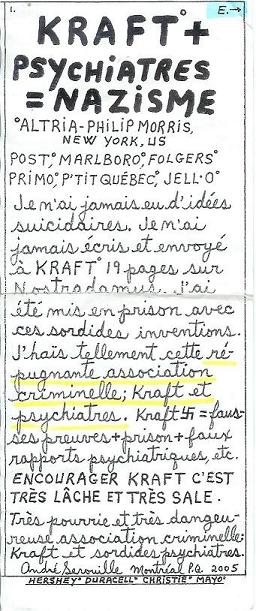 1. E.→
KRAFT° +
PSYCHiATRES
= NAZiSME
°ALTRIA-PHILIP MORRIS,
NEW YORK, US
POST,° MARLBORO,° FOLGERS°
PRIMO,° P'TIT QUÉBEC,° JELL-O°
Je n'ai jamais eu d'idées
suicidaires. Je n'ai
jamais écris et envoyé
à KRAFT° 19 pages sur
Nostradamus. J'ai
été mis en prison avec
ces sordides inventions.
J'haïs tellement cette ré-
pugnante association
criminelle; Kraft et
psychiatres. Kraft 卐 = faus-
ses preuves + prison + faux
rapports psychiatriques, etc.
ENCOURAGER KRAFT C'EST
TRÈS LÂCHE ET TRÈS SALE.
Très pourrie et très dangeu-
reuse association criminelle:
Kraft et sordides psychiatres.
André Serouille Montréal P.Q. 2005
HERSHEY° DURACELL° CHRISTIE° MAYO°